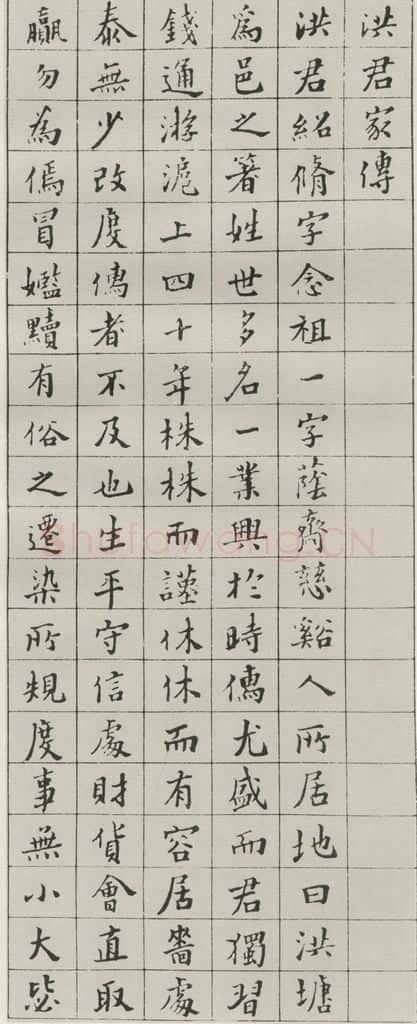 洪君家傳
洪君紹脩字念祖一字蔭齋慈谿人所居地曰洪塘
爲邑之箸姓世多名一業興於時儔尤盛而君獨習
錢通游滬上四十年株株而謹休休而有容居嗇處
泰無少改度儔者不及也生平守信處財貨會直取
贏勿為僞冒㜮黷有俗之遷染所規度事無小大毖
Shufawang.CN